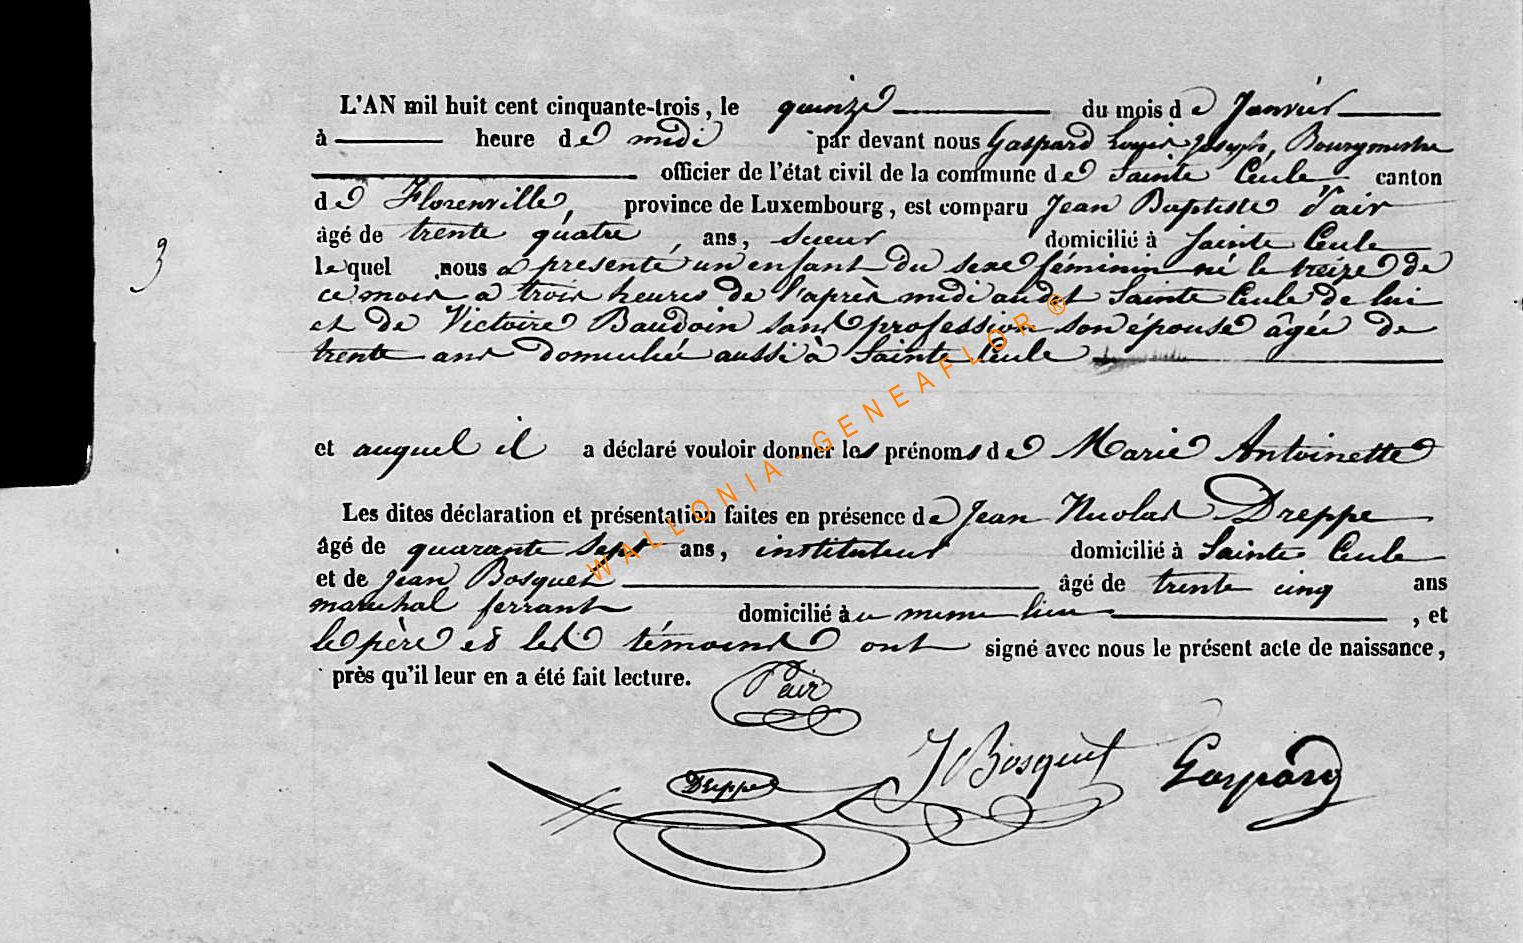 L'AN mil huit cent cinquante-trois, le quinze du mois de Janvier
à heure de midi par devant nous Gaspard Louis Joseph, Bourgmestre
officier de l'état civil de la commune de Sainte Cécile canton
de Florenville, province de Luxembourg, est comparu Jean Baptiste Pair
âgé de trente quatre, ans, domicilié à Sainte Cécile
lequel nous a présenté un enfant du sexe féminin né le treize de
ce mois a trois heures de l'après midi audit Sainte Cécile de lui
et de Victoire Baudoin sans profession son épouse âgée de
trente ans domiciliée aussi à Sainte Cécile
3
et auquel il a déclaré vouloir donner les prénoms de Marie Antoinette
Les dites déclaration et présentation faites en présence de Jean Nicolas Dreppe
âgé de quarante sept ans, instituteur domicilié à Sainte Cécile
et de Jean Bosquet âgé de trente cinq ans
maréchal ferrant domicilié au meme lieu, et
le père et les témoins ont signé avec nous le présent acte de naissance,
près qu'il leur en a été fait lecture.
Pair
J Bosquet Gaspard
Dreppe
WALLONIA-GENEAFLOR ®